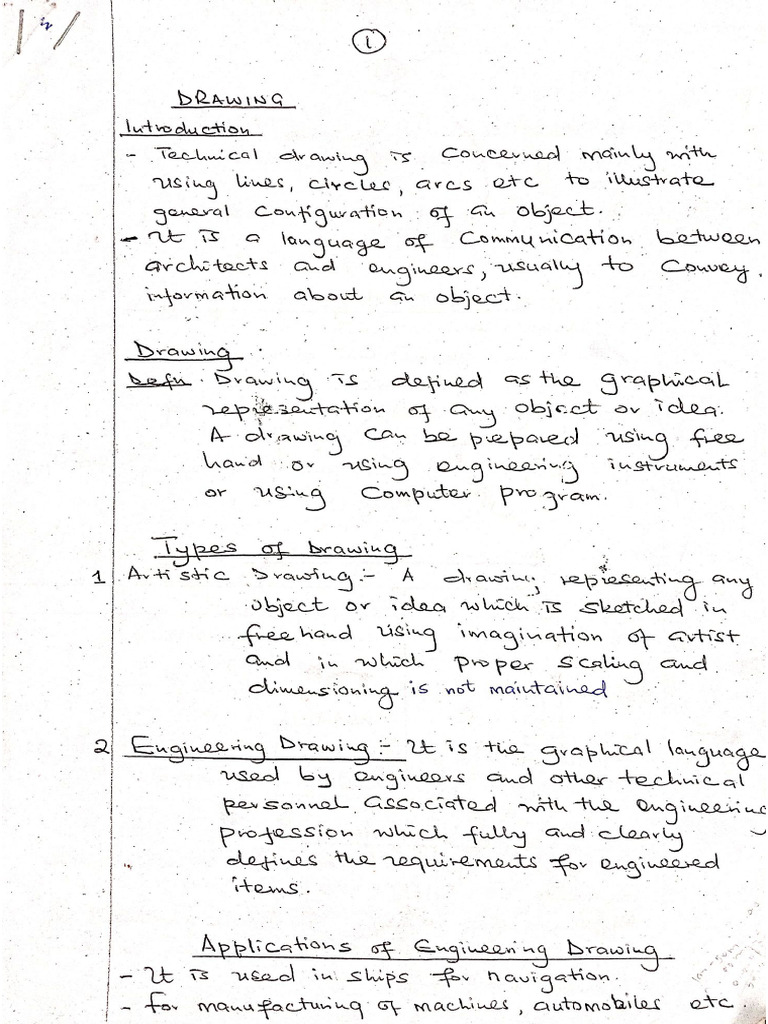 1
DRAWING
Introduction
- Technical drawing is concerned mainly with
using lines, circles, arcs etc to illustrate
general configuration of an object.
- It is a language of communication between
architects and engineers, usually to convey
information about an object.
Drawing
Defn. Drawing is defined as the graphical
representation of any object or idea.
A drawing can be prepared using free
hand or using engineering instruments
or using computer program.
Types of Drawing
1 Artistic Drawing:- A drawing representing any
object or idea which is sketched in
freehand using imagination of artist
and in which proper scaling and
dimensioning is not maintained
2 Engineering Drawing:- It is the graphical language
used by engineers and other technical
personnel associated with the engineering
profession which fully and clearly
defines the requirements for engineered
items.
Applications of Engineering Drawing
- It is used in ships for navigation.
- for manufacturing of machines, automobiles etc.